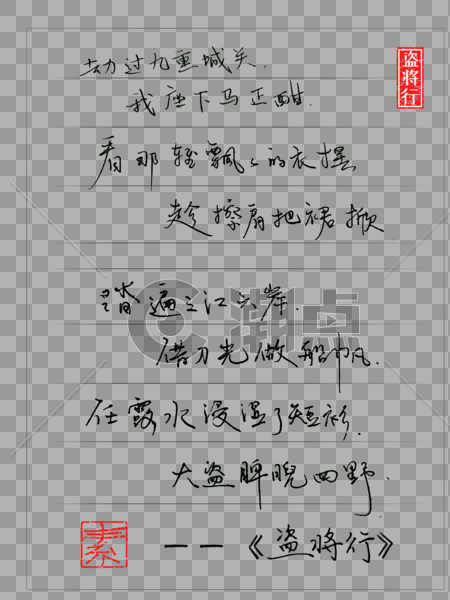 劫过九重城关.
我座下马正酣.
看那轻飘飘的衣摆
趁擦肩把裙掀
踏遍三江六岸.
借刀光做船帆.
任露水浸湿了短衫.
大盗睥睨四野.
——《盗将行》
盗将行
素
摄点